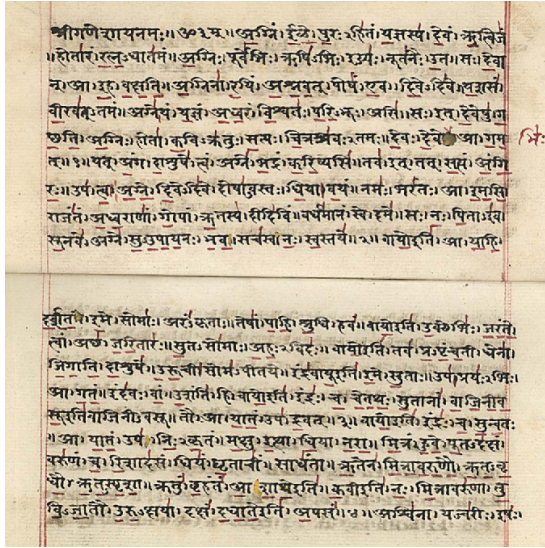 श्रीगणेशायनमः॥ॐ३म्॥अग्निं।ईळे।पुरःऽहितं।यज्ञस्य।देवं।ऋत्विजं
॥होतारं।रत्नऽधातमं॥अग्निः।पूर्वेभिः।ऋषिऽभिः।ईड्यः।नूतनैः।उत।सः।देवा
न्।आ।इह।वक्षति॥अग्निना।रयिं।अश्नवत्।पोषं।एव।दिवेऽदिवे॥यशसं।
वीरवत्ऽतमं॥अग्ने।यं।यज्ञं।अध्वरं।विश्वतः।परिऽभूः।असि॥सः।इत्।देवेषु।ग
च्छति॥अग्निः।होता।कविऽक्रतुः।सत्यः।चित्रश्रवःऽतमः॥देवः।देवे।आ।गम भिः
त्॥१॥यत्।अंग।दाशुषे।त्वं।अग्ने।भद्रं।करिष्यसि॥तव।इत्।तत्।सत्यं।अंगि
रः॥उप।त्वा।अग्ने।दिवेऽदिवे।दोषाऽवस्तः।धिया।वयं॥नमः।भरंतः।आ।इमसि॥
राजंतं।अध्वराणां।गोपां।ऋतस्य।दीदिविं॥वर्धमानं।स्वे।दमे॥सः।नः।पिताऽइव।
सूनवे।अग्ने।सुऽउपायनः।भव॥सचस्व।नः।स्वस्तये॥२॥वायोइति।आ।याहि।
दर्शत।इमे।सोमाः।अरंऽकृताः॥तेषां।पाहि।श्रुधि।हवं॥वायोइति।उक्थेभिः।जरंते।
त्वां।अच्छ।जरितारः॥सुतऽसोमाः।अहःऽविदः॥वायोइति।तव।प्रऽपृंचती।धेना।
जिगाति।दाशुषे॥उरूची।सोमऽपीतये॥इंद्रवायूइति।इमे।सुताः॥उप।प्रयःऽभिः।
आ।गतं॥इंदवः।वां।उशंति।हि॥वायोइति।इंद्रः।च।चेतथः।सुतानां।वाजिनीव
सूइतिवाजिनीऽवसू॥तौ।आ।यातं।उप।द्रवत्॥३॥वायोइति।इंद्रः।च।सुन्वतः
॥आ।यातं।उप।निःऽकृतं॥मक्षु।इत्था।धिया।नरा॥मित्रं।हुवे।पूतऽदक्षं।
वरुणं।च।रिशादसं॥धियं।घृताचीं।साधंता॥ऋतेन।मित्रावरुणौ।ऋतऽवृ
धौ।ऋतऽस्पृशा॥क्रतुं।बृहंतं।आशाथेइति॥कवीइति।नः।मित्रावरुणा।तु
विऽजातौ।उरुऽक्षया॥दक्षं।दधातेइति।अपसं॥४॥अश्विना।यज्वरीः।इषः।